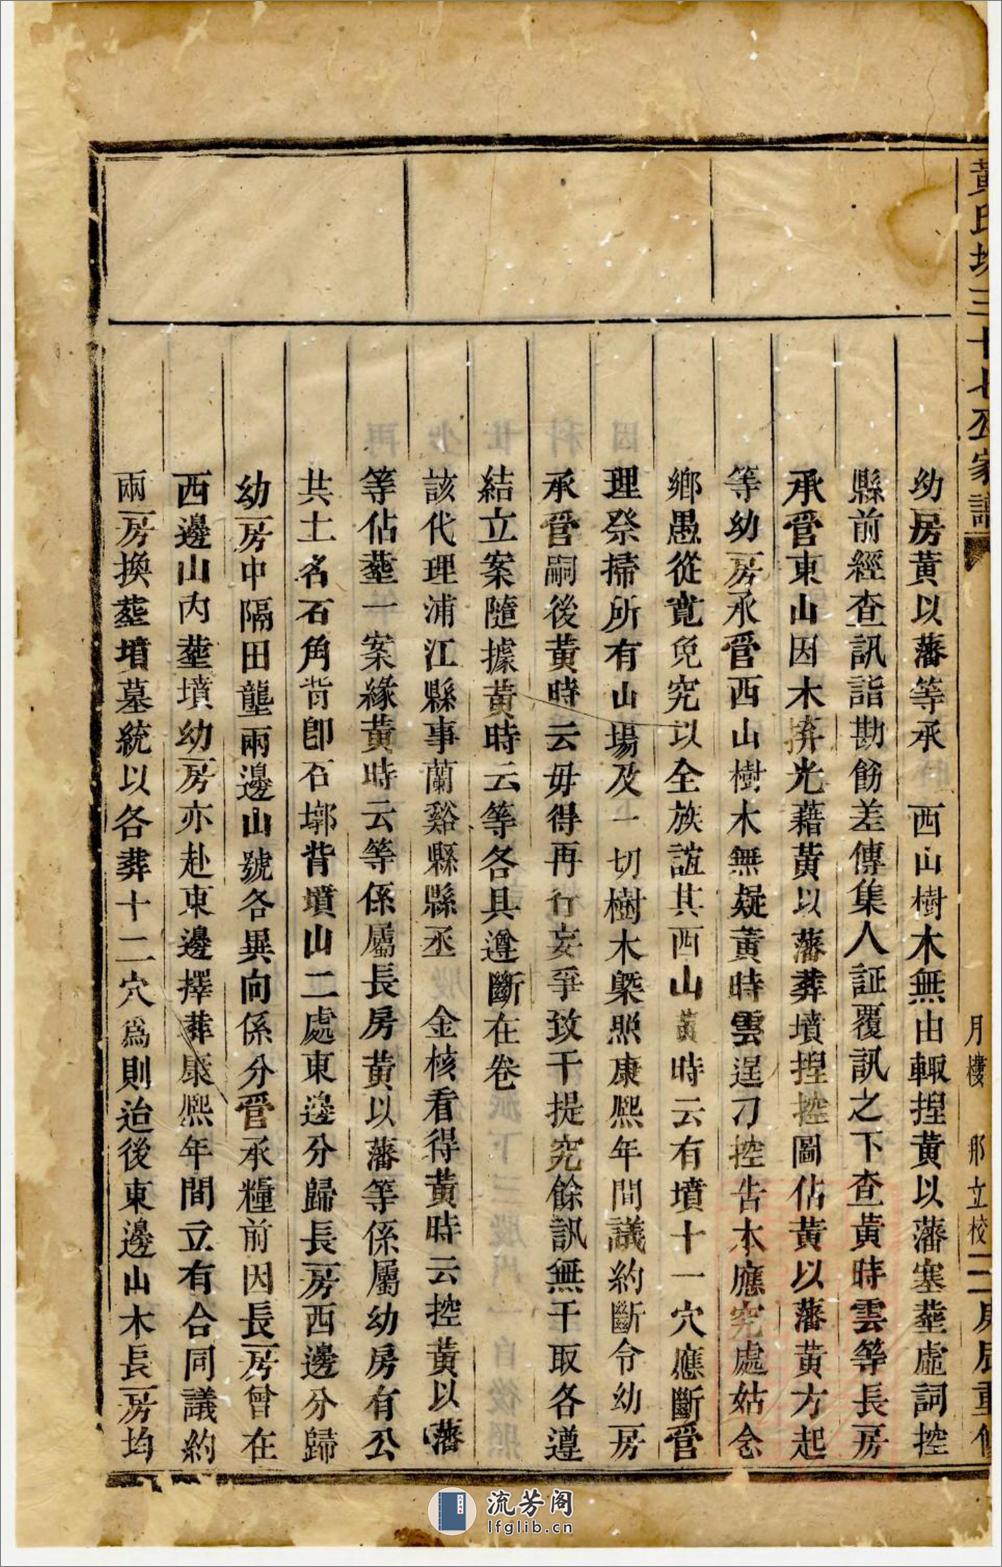 黃氏塘三十七公家譜
月樓 那立校
幼房黃以藩等承 西山樹木無由輙揑黃以藩塞塟虛詞控
縣前經查訊詣勘飭差傳集人証覆訊之下查黃時雲等長房
承管東山因木拚光藉黃以藩葬墳揑控圖佔黃以藩黃方起
等幼房承管西山樹木無疑黃時雲逞刁控告本應究處姑念
鄉愚從寬免究以全族誼其西山黃時云有墳十一穴應斷管
理祭掃所有山場及一切樹木槩照康熙年間議約斷令幼房
承管嗣後黃時云毋得再行妄爭致干提究餘訊無干取各遵
結立案隨據黃時云等各具遵斷在卷
該代理浦江縣事蘭谿縣縣丞 金核看得黃時云控黃以藩
等佔塟一案緣黃時云等係屬長房黃以藩等係屬幼房有公
共土名石角背卽石墎背墳山二處東邊分歸長房西邊分歸
幼房中隔田壟兩邊山號各異向係分管承糧前因長房曾在
西邊山內塟墳幼房亦赴東邊擇葬康熙年間立有合同議約
兩房換塟墳墓統以各葬十二穴爲則迨後東邊山木長房均
流芳阁
lfglib.cn